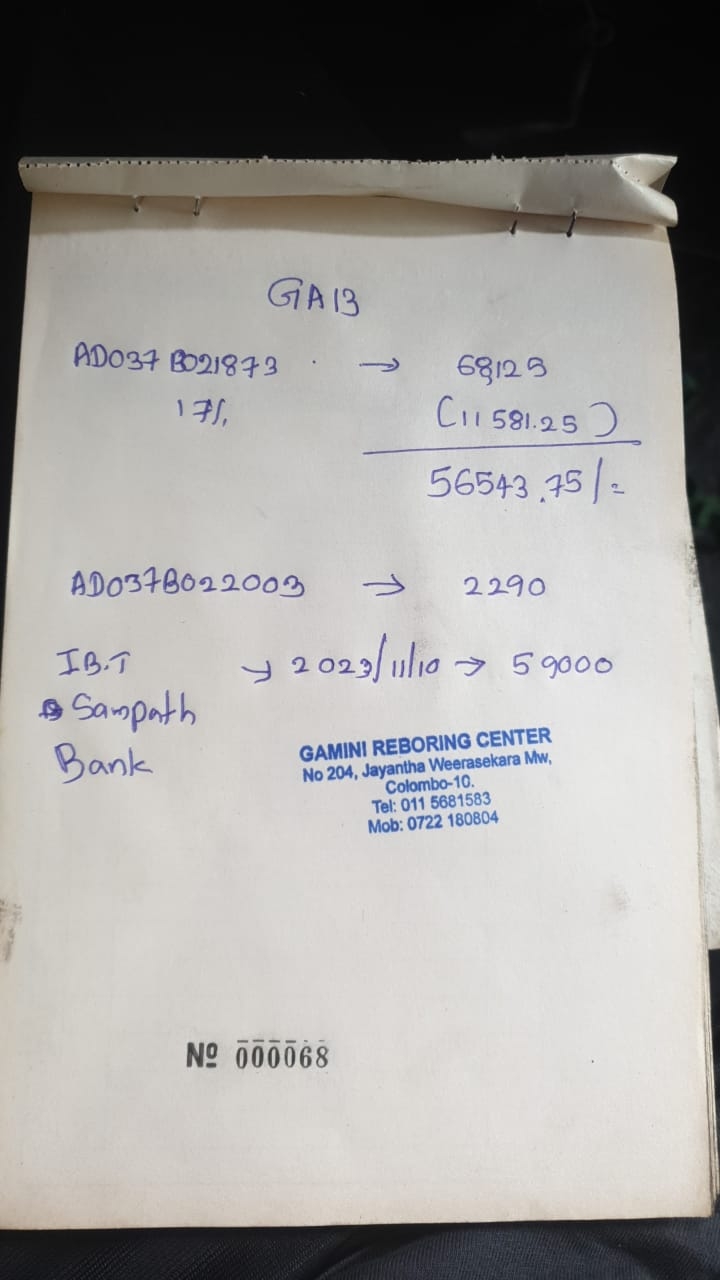 GA13
AD037B021873 → 68125
17% (11581.25)
56543.75/=
AD037B022003 → 2290
I.B.T → 2023/11/10 → 59000
Sampath
Bank
GAMINI REBORING CENTER
No 204, Jayantha Weerasekara Mw,
Colombo-10.
Tel: 011 5681583
Mob: 0722 180804
Nº 000068